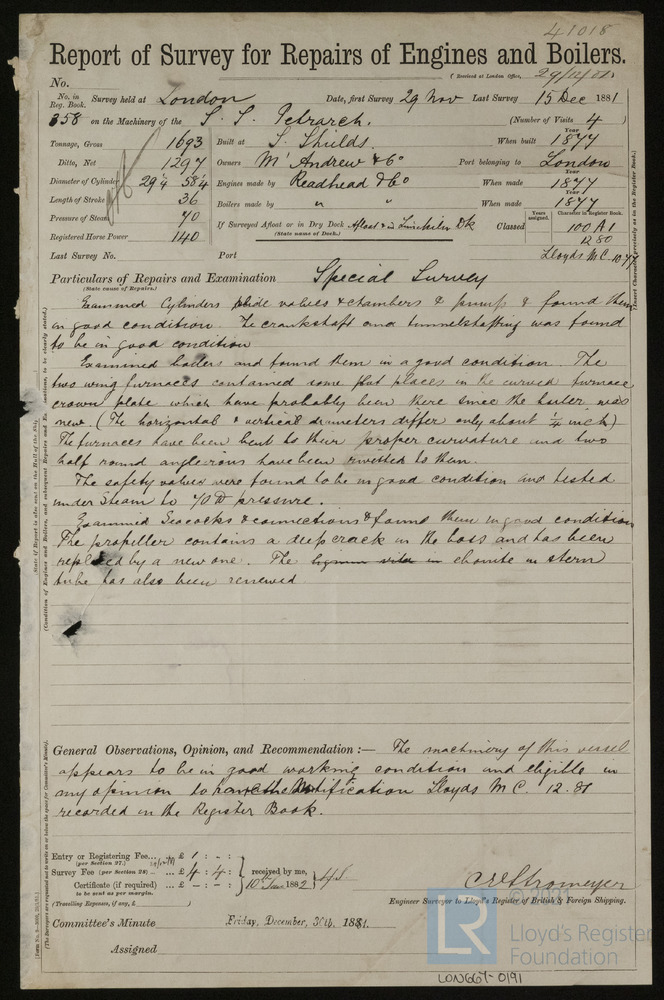 41018
Report of Survey for Repairs of Engines and Boilers.
(Received at London Office, 29/12/81)
No.
No. in Reg. Book. Survey held at London Date, first Survey 29 Nov Last Survey 15 Dec 1881
358 on the Machinery of the S. S. Petrarch. (Number of Visits 4)
Tonnage, Gross 1693 Built at S. Shields. When built Year 1877
Ditto, Net 1297 Owners McAndrew & Co Port belonging to London
Diameter of Cylinder 29 1/4 58 1/4 Engines made by Readhead & Co When made Year 1877
Length of Stroke 36 Boilers made by " " When made 1877
Pressure of Steam 70 If Surveyed Afloat or in Dry Dock Afloat & in Limekiln Dk Classed Years assigned. Character in Register Book. 100 A1
(State name of Dock.) 12.80
Registered Horse Power 140
Last Survey No. Port Lloyds M.C. 10.77
Particulars of Repairs and Examination Special Survey
(State cause of Repairs.)
Examined Cylinders slide valves & chambers & pumps & found them
in good condition. The crankshaft and tunnelshafting was found
to be in good condition
Examined boilers and found them in a good condition. The
two wing furnaces contained some flat places in the curved furnace
crown plate which have probably been there since the boiler was
new. (The horizontal & vertical diameters differ only about 1/4 inch)
The furnaces have been bent to their proper curvature and two
half round angle irons have been rivetted to them.
The safety valves were found to be in good condition and tested
under Steam to 70 lb pressure.
Examined Seacocks & connections & found them in good condition
The propeller contains a deep crack in the boss and has been
replaced by a new one. The lignum vitæ in ebonite in stern
tube has also been renewed
General Observations, Opinion, and Recommendation :— The machinery of this vessel
appears to be in good working condition and eligible in
my opinion to have the Notification Lloyds M C. 12.81
recorded in the Register Book.
Entry or Registering Fee... £ 1 : - :
(per Section 27.)
Survey Fee (per Section 28) ... £ 4 : 4 : received by me,
Certificate (if required) ... - : - : 10 Jan 1882
to be sent as per margin.
(Travelling Expenses, if any, £ )
C E Stromeyer
Engineer Surveyor to Lloyd's Register of British & Foreign Shipping.
Committee's Minute Friday, December, 30th. 1881.
Assigned
© 2021
LR
Lloyd's Register
Foundation
LON667-0191